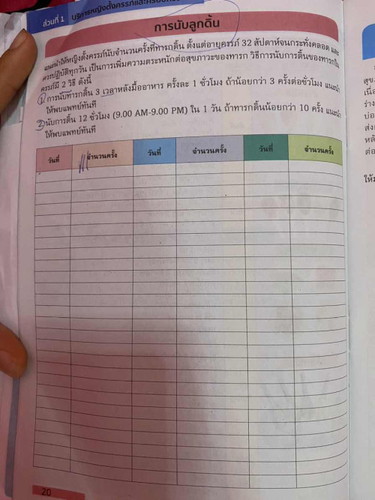 ส่วนที่ 1 บริการหญิงตั้งครรภ์และ
การนับลูกดิ้น
แนะนำให้หญิงตั้งครรภ์นับจำนวนครั้งที่ทารกดิ้น ตั้งแต่อายุครรภ์ 32 สัปดาห์จนกระทั่งคลอด และ
ควรปฏิบัติทุกวัน เป็นการเพิ่มความตระหนักต่อสุขภาวะของทารก วิธีการนับการดิ้นของทารกใน
ครรภ์มี 2 วิธี ดังนี้
1) การนับทารกดิ้น 3 เวลาหลังมื้ออาหาร ครั้งละ 1 ชั่วโมง ถ้าน้อยกว่า 3 ครั้งต่อชั่วโมง แนะนำ
ให้พบแพทย์ทันที
2) นับการดิ้น 12 ชั่วโมง (9.00 AM-9.00 PM) ใน 1 วัน ถ้าทารกดิ้นน้อยกว่า 10 ครั้ง แนะนำ
ให้พบแพทย์ทันที
วันที่ จำนวนครั้ง วันที่ จำนวนครั้ง วันที่ จำนวนครั้ง
20